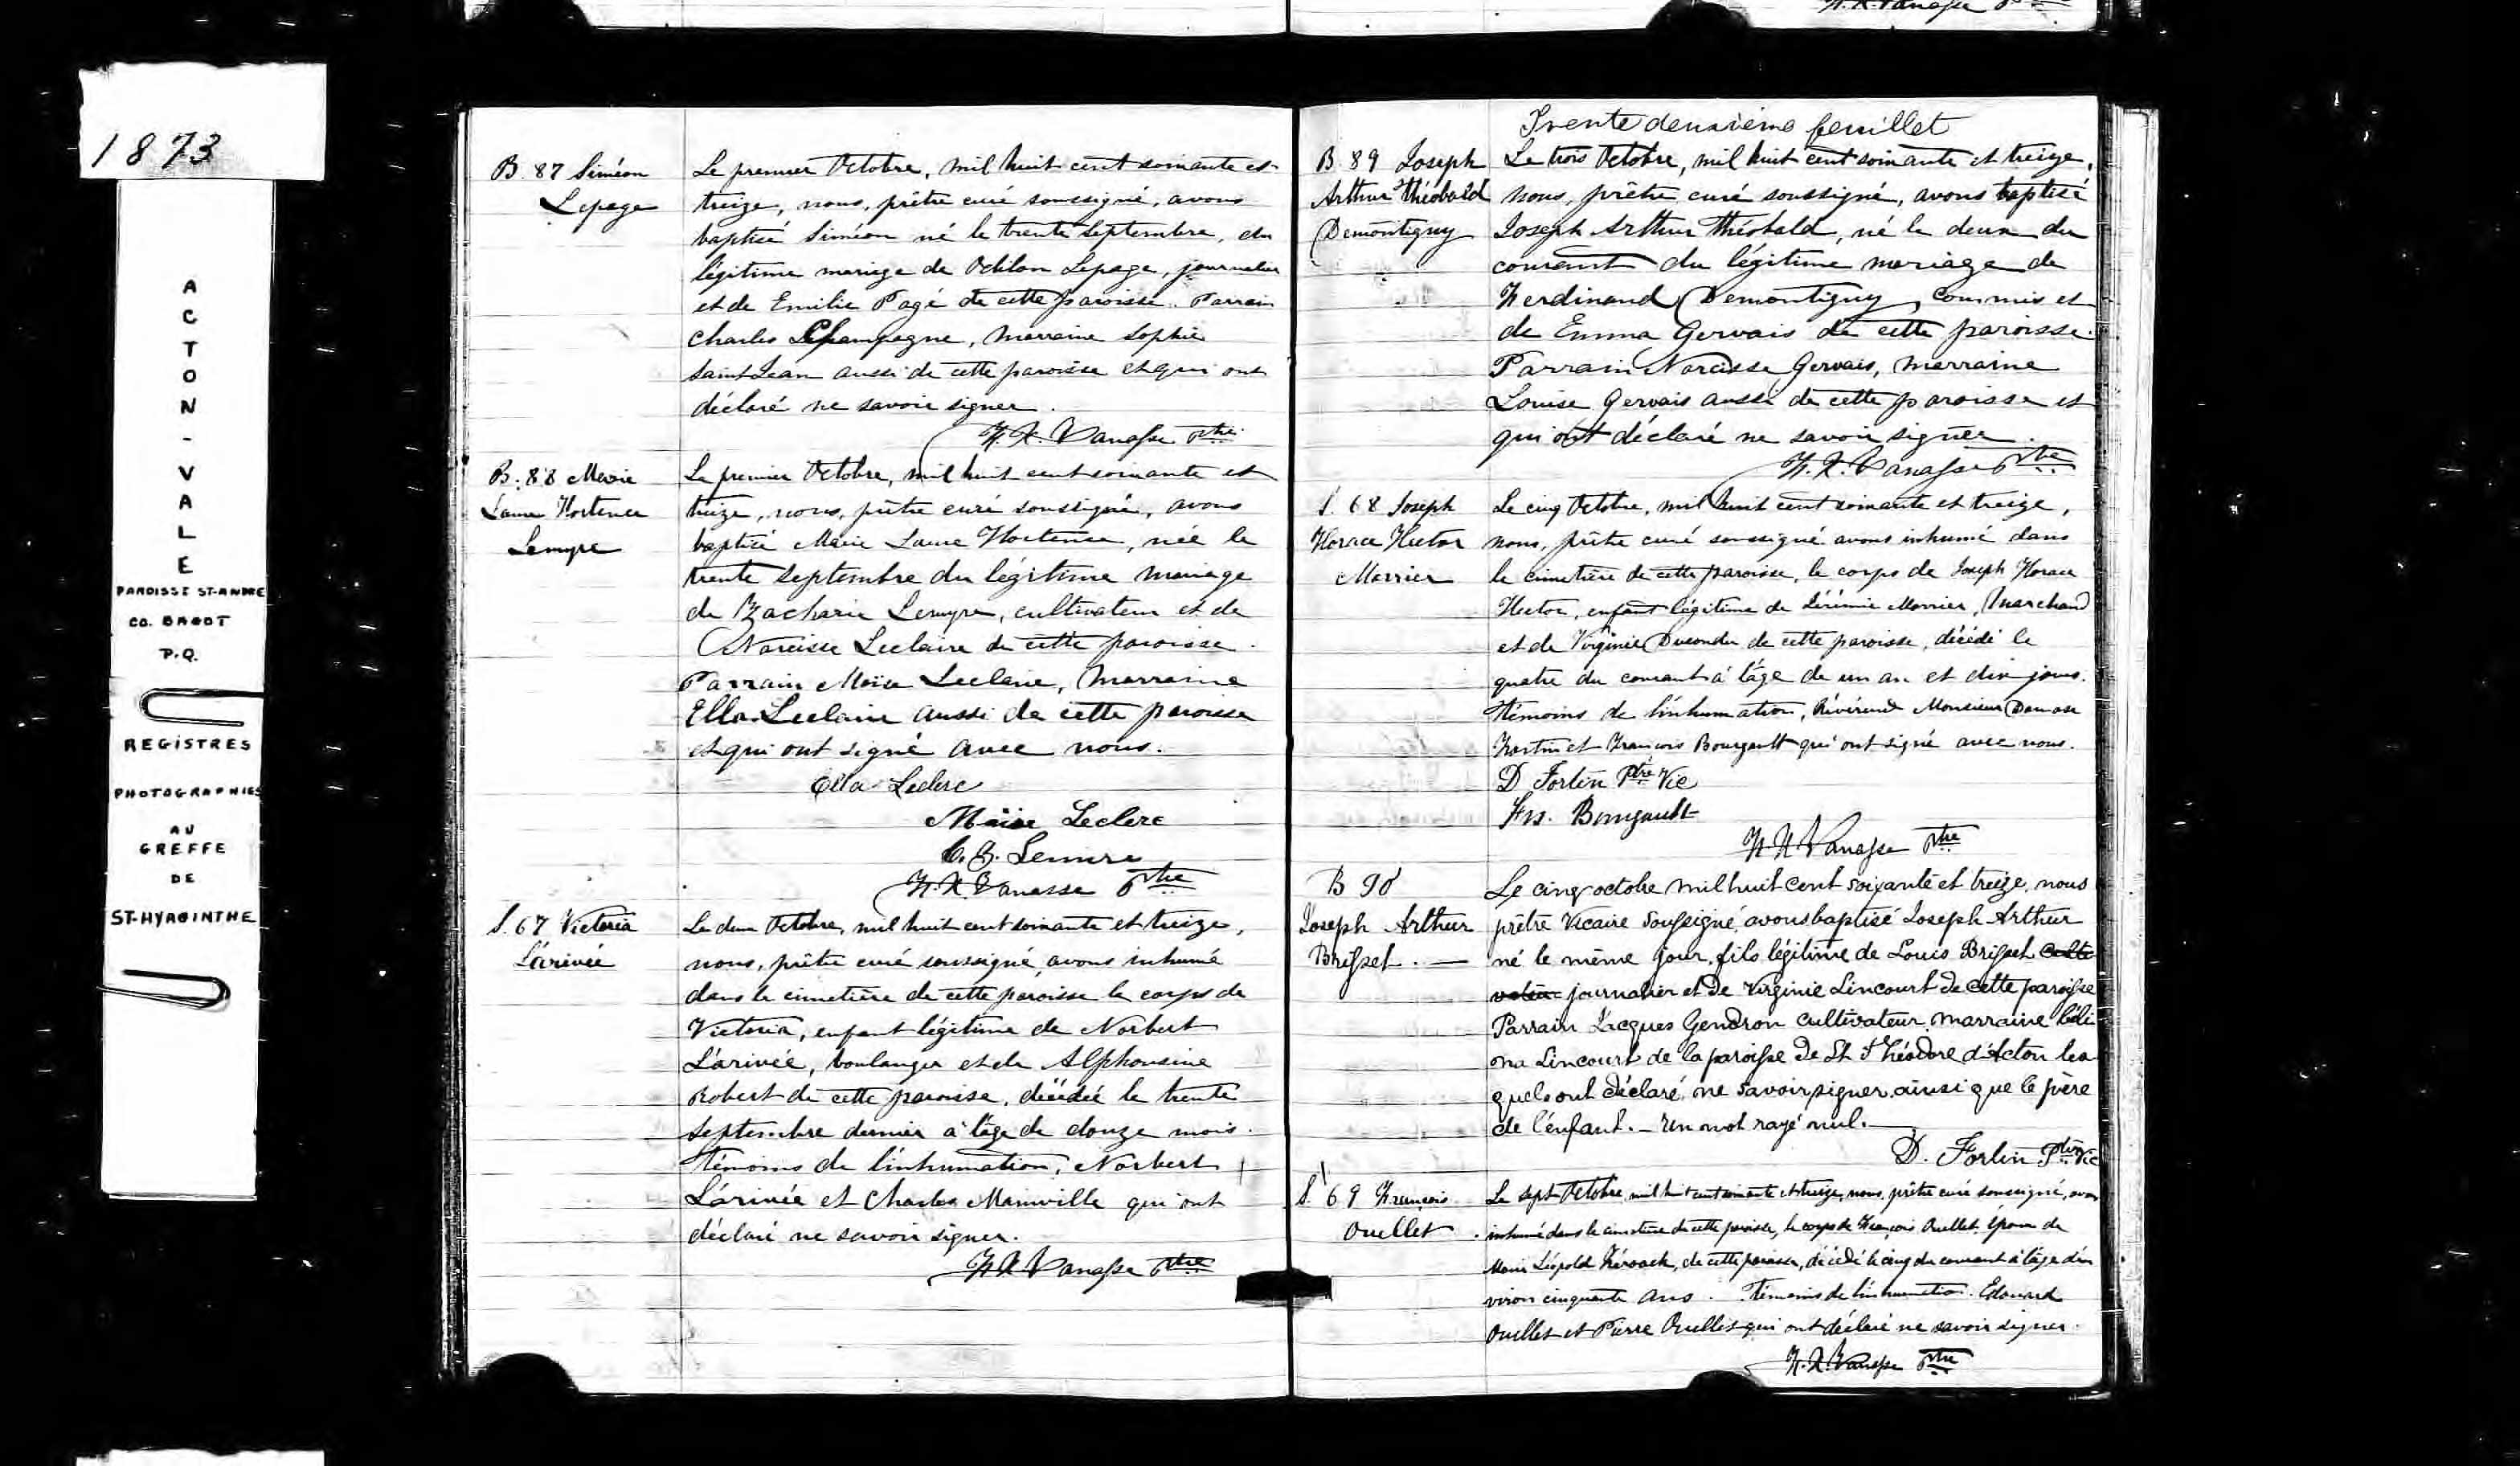 F. X. Vanasse Ptre
1873
ACTON-VALE
PAROISSE ST-ANDRE
CO. BAGOT
P.Q.
REGISTRES
PHOTOGRAPHIES
AU
GREFFE
DE
ST-HYACINTHE
B. 87 Siméon
Lepage
Le premier Octobre, mil huit cent soixante et
treize, nous, prêtre curé soussigné, avons
baptisé Siméon né le trente Septembre, du
légitime mariage de Odilon Lepage, journalier
et de Emilie Pagé de cette paroisse. Parrain
Charles Champagne, Marraine Sophie
Saint Jean aussi de cette paroisse et qui ont
déclaré ne savoir signer.
F. X. Vanasse Ptre
B. 88 Marie
Laura Hortence
Lemyre
Le premier Octobre, mil huit cent soixante et
treize, nous, prêtre curé soussigné, avons
baptisé Marie Laura Hortence, née le
trente Septembre du légitime mariage
de Zacharie Lemyre, cultivateur et de
Narcisse Leclaire de cette paroisse.
Parrain Moïse Leclaire, Marraine
Ella Leclaire aussi de cette paroisse
et qui ont signé avec nous.
Ella Leclerc
Moïse Leclerc
Lemire
F. X. Vanasse Ptre
S. 67 Victoria
L'arivée
Le deux Octobre, mil huit cent soixante et treize,
nous, prêtre curé soussigné, avons inhumé
dans le cimetière de cette paroisse le corps de
Victoria, enfant légitime de Norbert
L'arivée, boulanger et de Alphonsine
Robert de cette paroisse, décédée le trente
Septembre dernier à l'âge de douze mois.
Témoins de l'inhumation, Norbert
L'arivée et Charles Mainville qui ont
déclaré ne savoir signer.
F. X. Vanasse Ptre
Trente deuxième feuillet
B. 89 Joseph
Arthur Théobald
Demontigny
Le trois Octobre, mil huit cent soixante et treize,
nous, prêtre curé soussigné, avons baptisé
Joseph Arthur Théobald, né le deux du
courant du légitime mariage de
Ferdinand Demontigny, commis et
de Emma Gervais de cette paroisse.
Parrain Narcisse Gervais, Marraine
Louise Gervais aussi de cette paroisse et
qui ont déclaré ne savoir signer.
F. X. Vanasse Ptre
S. 68 Joseph
Horace Hector
Morrier
Le cinq Octobre, mil huit cent soixante et treize,
nous, prêtre curé soussigné avons inhumé dans
le cimetière de cette paroisse, le corps de Joseph Horace
Hector, enfant légitime de Jérémie Morrier, Marchand
et de Virginie Ducondu de cette paroisse, décédé le
quatre du courant à l'âge de un an et dix jours.
Témoins de l'inhumation, Révérend Monsieur Damase
Fortin et François Bourgault qui ont signé avec nous.
D Fortin Ptre Vic
Frs. Bourgault
F. X. Vanasse Ptre
B 90
Joseph Arthur
Brisset. —
Le cinq octobre mil huit cent soixante et treize, nous
prêtre Vicaire soussigné, avons baptisé Joseph Arthur
né le même jour, fils légitime de Louis Brisset culti
vateur journalier et de Virginie Lincourt de cette paroisse
Parrain Jacques Gendron cultivateur, marraine Céli
na Lincourt de la paroisse de St Théodore d'Acton les
quels ont déclaré ne savoir signer, ainsi que le père
de l'enfant. — Un mot rayé nul. —
D. Fortin Ptre Vic
S. 69 François
Ouellet
Le sept Octobre, mil huit cent soixante et treize, nous, prêtre curé soussigné, avons
inhumé dans le cimetière de cette paroisse, le corps de François Ouellet, époux de
Marie Léopold Kérouack, de cette paroisse, décédé le cinq du courant à l'âge d'en
viron cinquante ans. Témoins de l'inhumation. Edouard
Ouellet et Pierre Ouellet qui ont déclaré ne savoir signer.
F. X. Vanasse Ptre